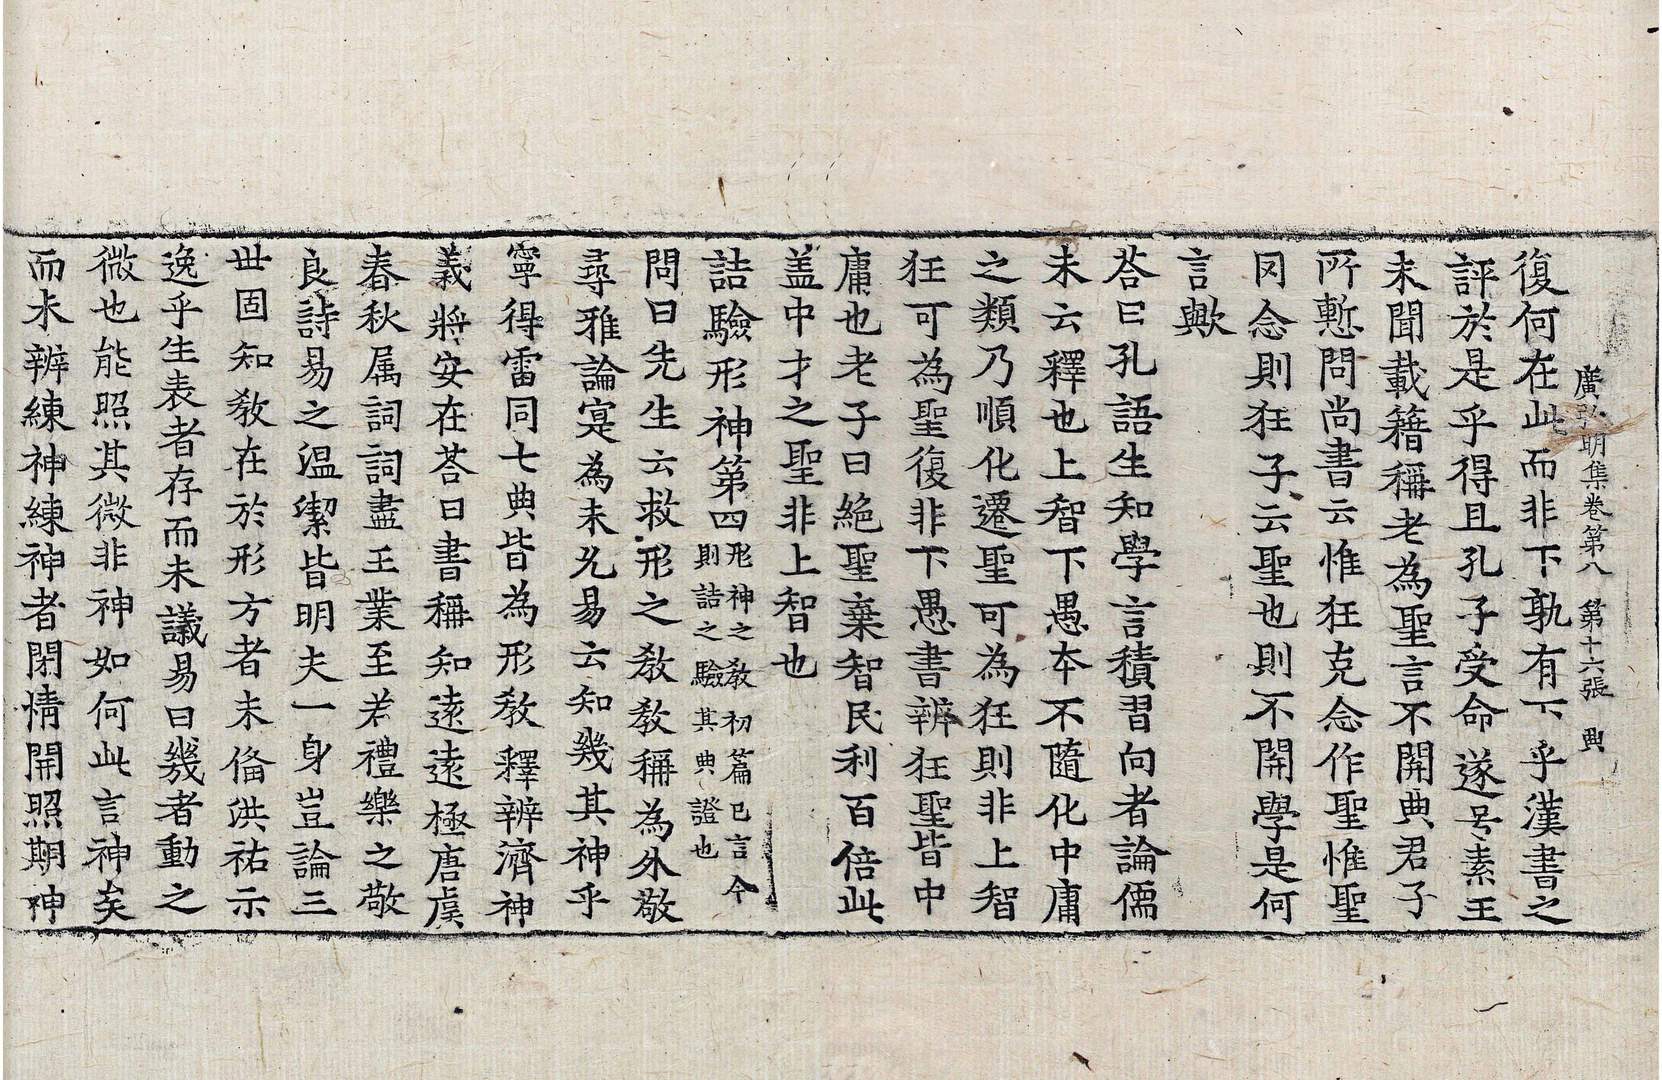 廣弘明集卷第八　第十六張　典
復何在此而非下孰有下乎漢書之
評於是乎得且孔子受命遂号素王
未聞載籍稱老為聖言不開典君子
所慙問尚書云惟狂克念作聖惟聖
罔念則狂子云聖也則不開學是何
言歟
荅曰孔語生知學言積習向者論儒
未云釋也上智下愚本不隨化中庸
之類乃順化遷聖可為狂則非上智
狂可為聖復非下愚書辨狂聖皆中
庸也老子曰絕聖棄智民利百倍此
盖中才之聖非上智也
詰驗形神第四形神之教初篇已言今
則詰之驗其典證也
問曰先生云救形之教教稱為外敬
尋雅論寔為未允易云知幾其神乎
寧得雷同七典皆為形教釋辨濟神
義將安在荅曰書稱知遠遠極唐虞
春秋属詞詞盡王業至若禮樂之敬
良詩易之温潔皆明夫一身豈論三
丗固知教在於形方者未俻洪祐示
逸乎生表者存而未議易曰幾者動之
微也能照其微非神如何此言神矣
而未辨練神練神者閉情開照期神